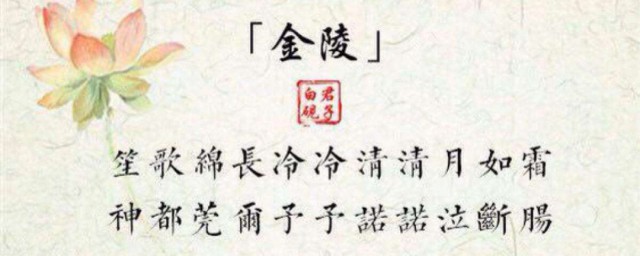 「金陵」
君子
白硯
笙歌綿長冷冷清清月如霜
神都莞爾予予諾諾泣斷腸